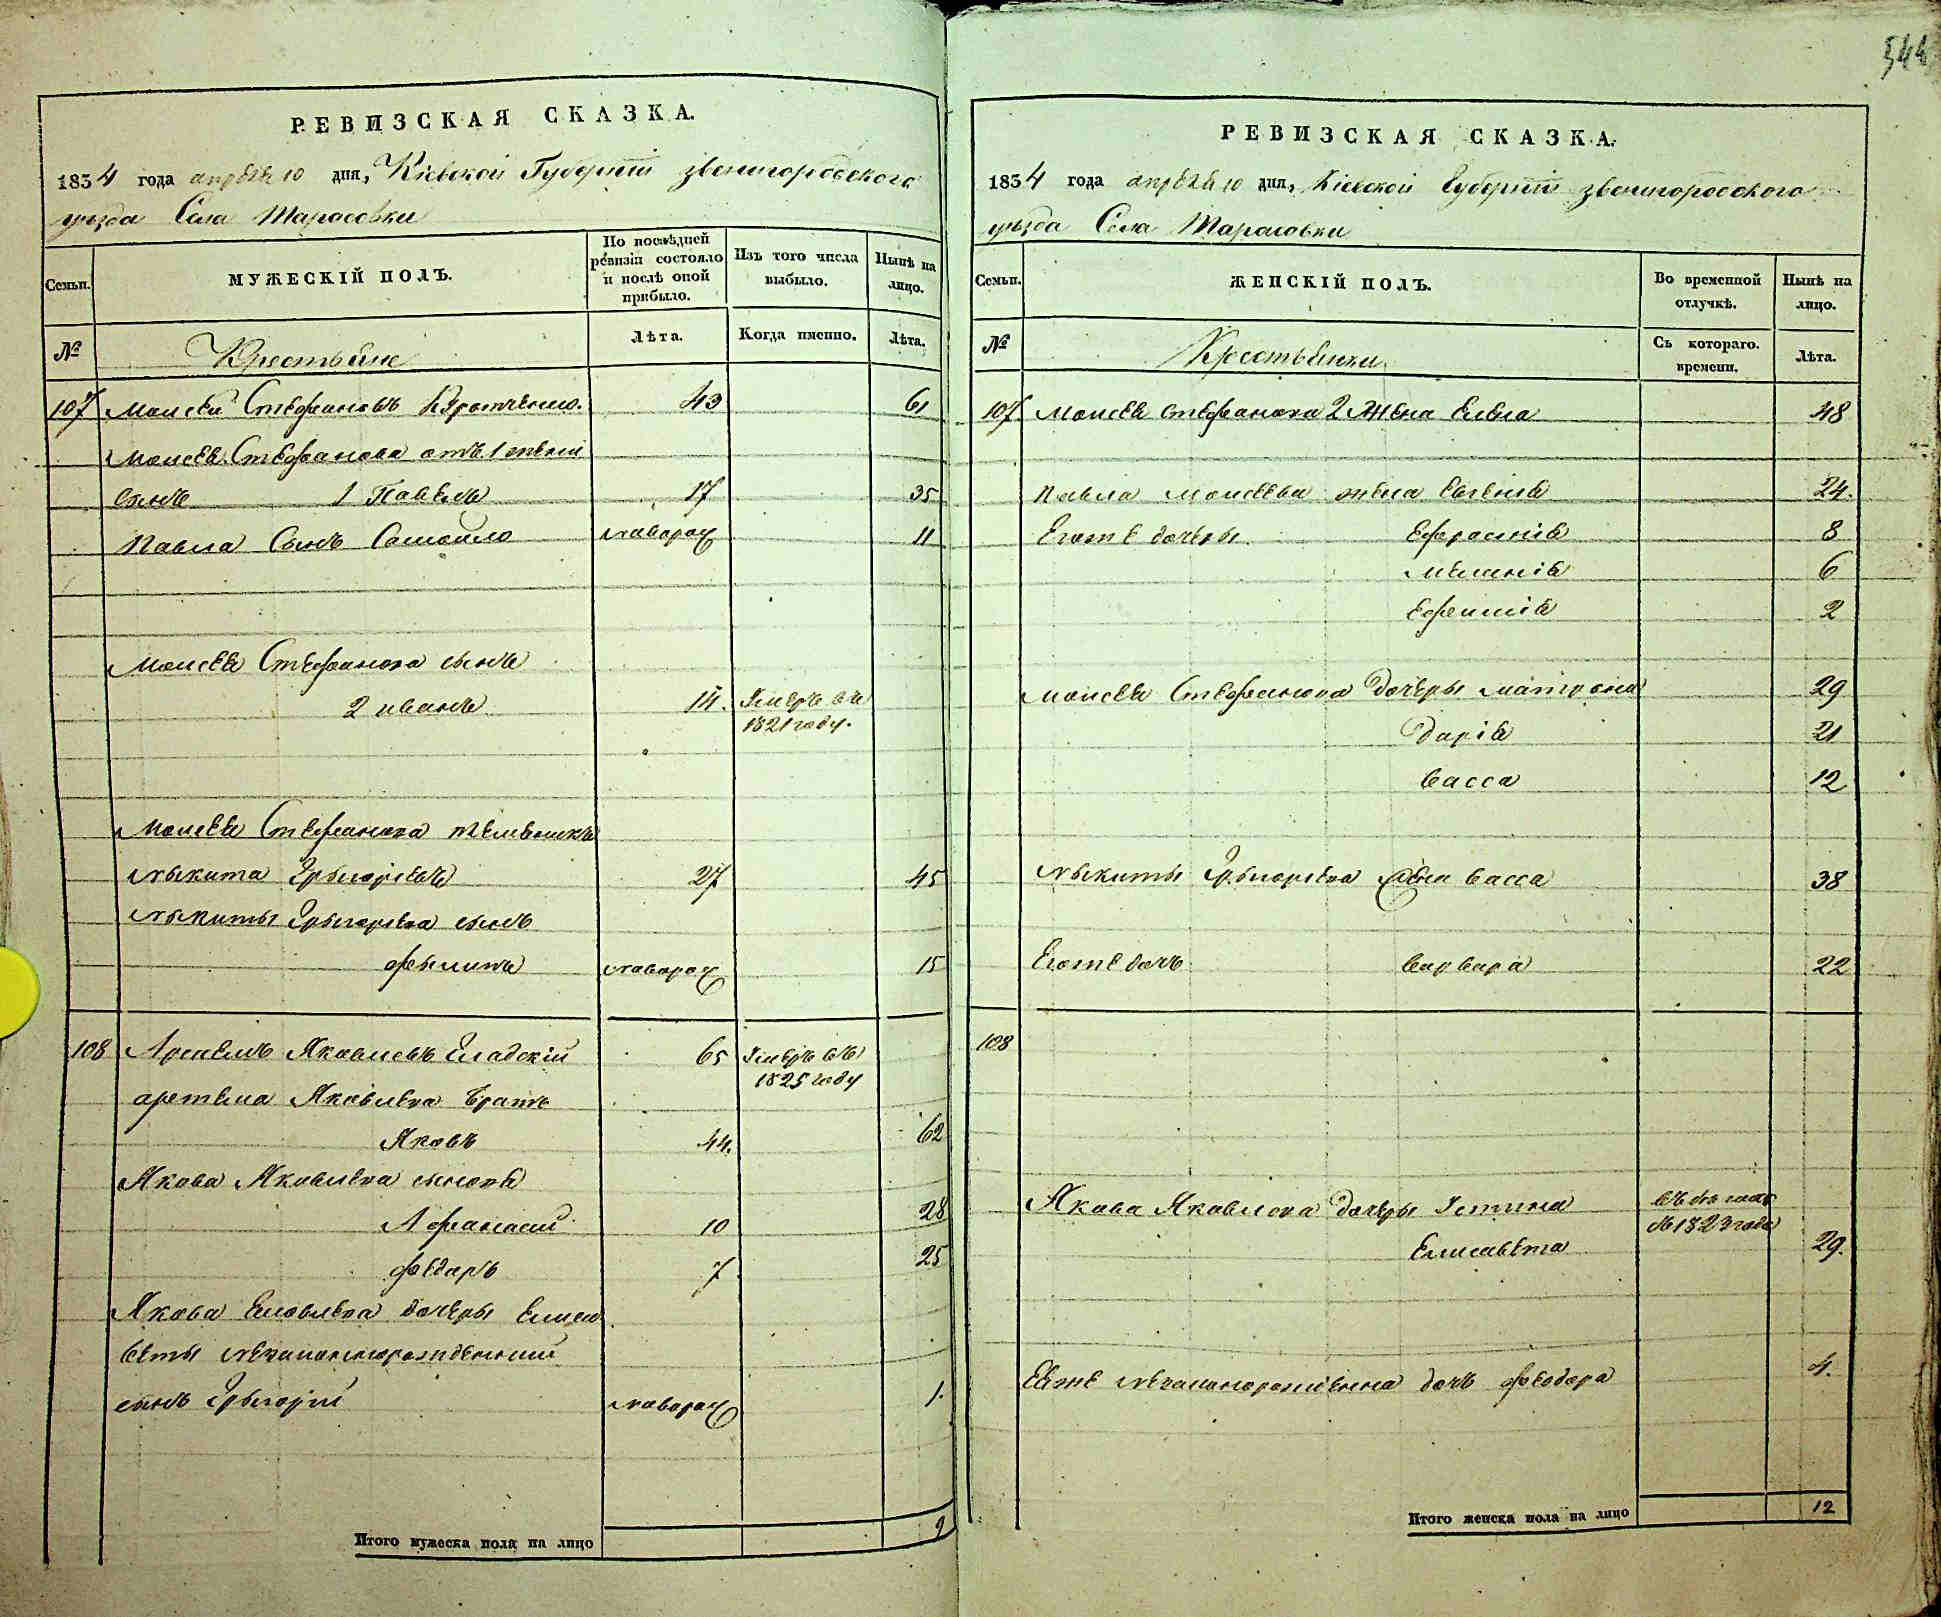 544
РЕВИЗСКАЯ СКАЗКА.
1834 года апрѣля 10 дня, Кіевской Губерніи звенигородского
уѣзда Села Тарасовки
Семьи.
МУЖЕСКІЙ ПОЛЪ.
По послѣдней ревизіи состояло и послѣ оной прибыло.
Изъ того числа выбыло.
Нынѣ на лицо.
№
Крестьяне
Лѣта.
Когда именно.
Лѣта.
107 Моисей Стефановъ 43 61
Моисея Стефанова отъ 1 жены
сынъ 1 Павелъ 17 35
Павла Сынъ Самойло новорож 11
Моисея Стефанова сынъ
2 иванъ 14. Умеръ въ
1821 году.
Моисея Стефанова племеникъ
Никита Григоріевъ 27 45
Никиты Григорієва сынъ
Филипъ новорож 15
108 Яковлевъ Гладкій 65 Умеръ въ
1825 году
артема Яковлева братъ
Яковъ 44. 62
Якова Яковлева сыновя
Афанасій 10 28
Федоръ 7 25
Якова Яковлева дочери Елиса
веты незаконнорожденный
сынъ Григорій новорож 1.
Итого мужеска пола на лицо 9
РЕВИЗСКАЯ СКАЗКА.
1834 года апрѣля 10 дня, Кіевской Губерніи звенигородского
уѣзда Села Тарасовки
Семьи.
ЖЕНСКІЙ ПОЛЪ.
Во временной отлучкѣ.
Нынѣ на лицо.
№
Крестьянки
Съ котораго времени.
Лѣта.
107 Моисея стефанова 2 Жена Елена 48
Павла Моисеева жена Евгенія 24.
Егоже дочеры Ефросинія 8
Меланія 6
Ефимія 2
Моисея Стефанова Дочеры Матрона 29
Дарія 21
Васса 12
Никиты Григорієва жена Васса 38
Егоже дочь Варвара 22
108
Якова Яковлева Дочеры Устина
1823 года
Елисавета 29.
Еяже незаконорожденна дочь Феодора 4.
Итого женска пола на лицо 12